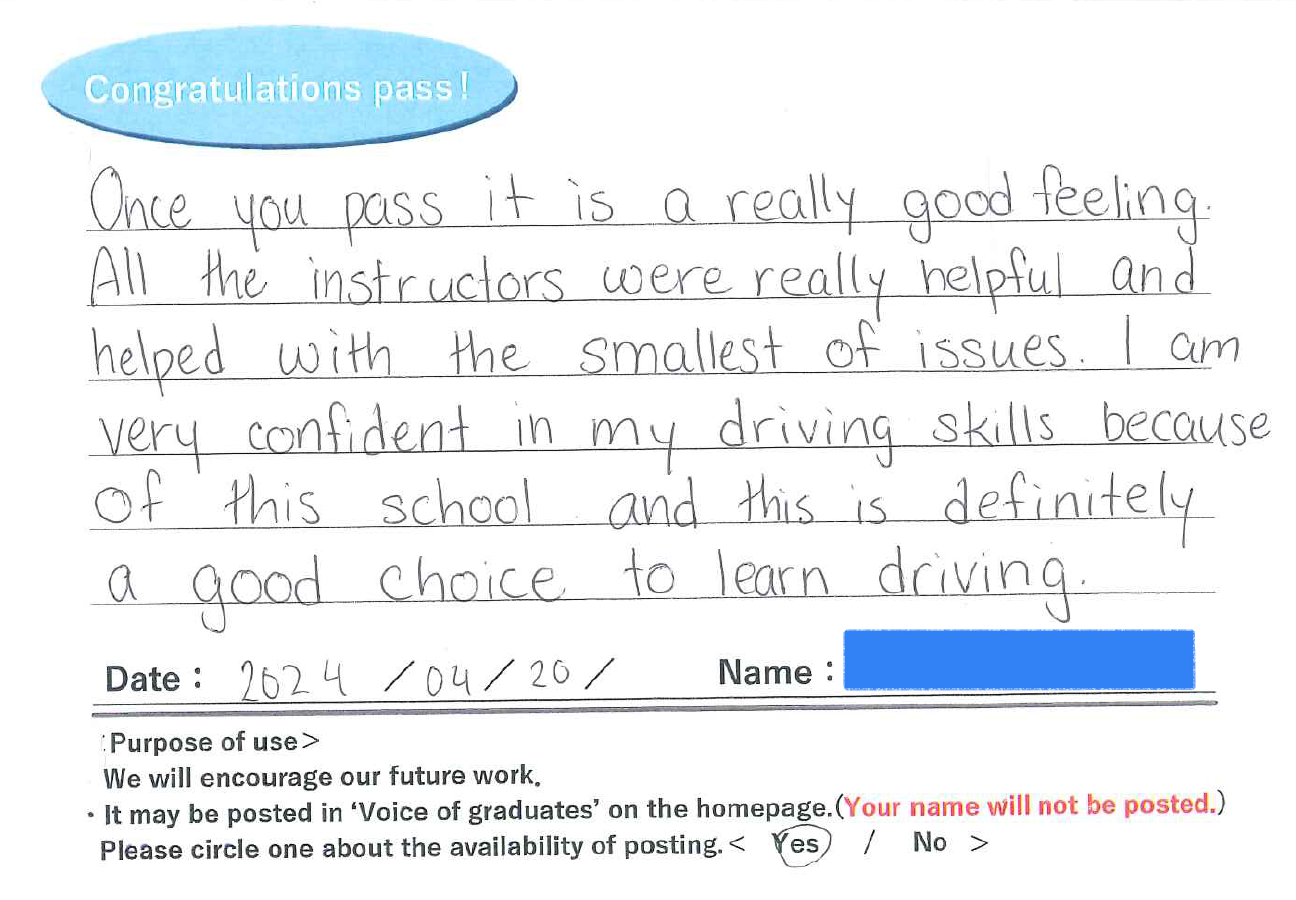 Congratulations pass!
Once you pass it is a really good feeling.
All the instructors were really helpful and
helped with the smallest of issues. I am
very confident in my driving skills because
of this school and this is definitely
a good choice to learn driving.
Date : 2024 /04/20/ Name :
:Purpose of use>
We will encourage our future work.
・It may be posted in ‘Voice of graduates’ on the homepage.(Your name will not be posted.)
Please circle one about the availability of posting.< Yes / No >